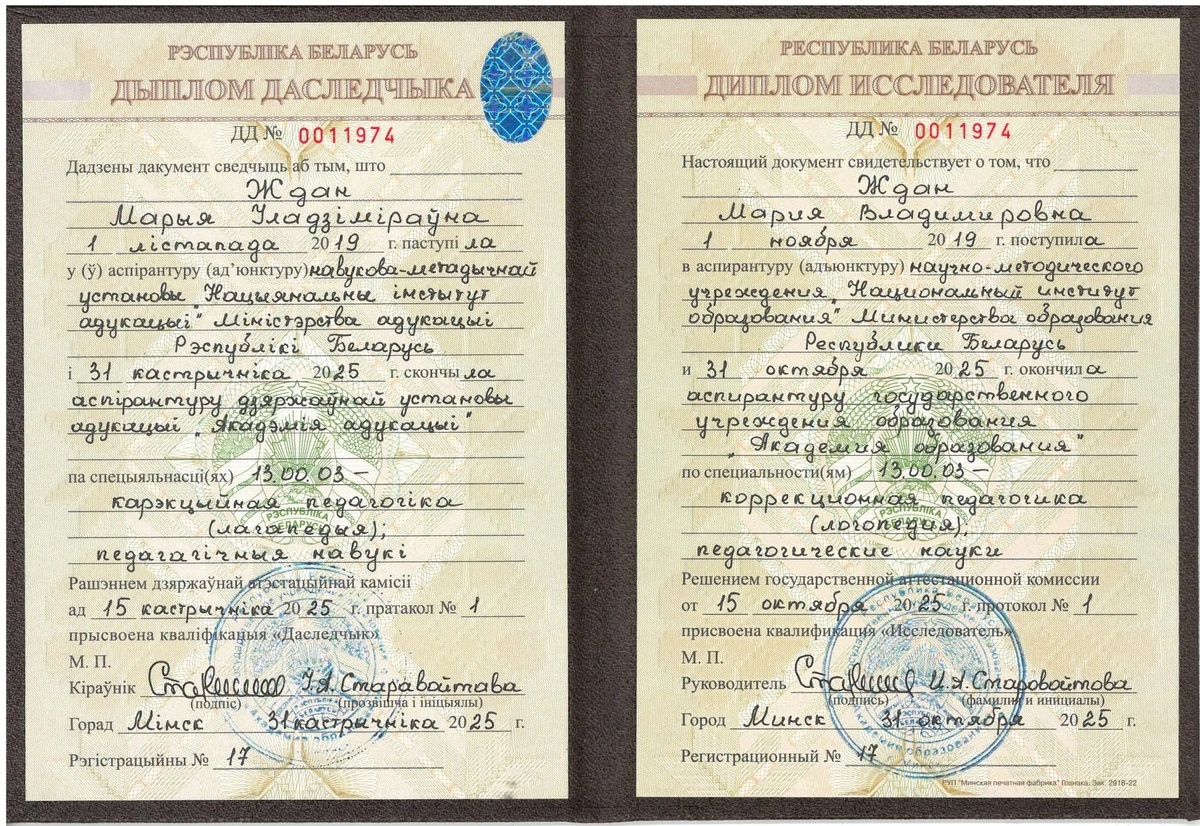 РЭСПУБЛІКА БЕЛАРУСЬ
ДЫПЛОМ ДАСЛЕДЧЫКА
ДД № 0011974
Дадзены дакумент сведчыць аб тым, што
Ждан
Марыя Уладзіміраўна
1 лістапада 2019 г. паступі ла
у (ў) аспірантуру (ад’юнктуру) навукова-метадычнай
установы „Нацыянальны інстытут
адукацыі" Міністэрства адукацыі
Рэспублікі Беларусь
і 31 кастрычніка 2025 г. скончы ла
аспірантуру дзяржаўнай установы
адукацыі „Акадэмія адукацыі"
па спецыяльнасці(ях) 13.00.03 –
карэкцыйная педагогіка
(лагапедыя);
педагагічныя навукі
РЭСПУБЛІКА
БЕЛАРУСЬ
Рашэннем дзяржаўнай атэстацыйнай камісіі
ад 15 кастрычніка 2025 г. пратакол № 1
прысвоена кваліфікацыя «Даследчык»
М. П.
Кіраўнік І.А. Старавойтава
(подпіс) (прозвішча і ініцыялы)
Горад Мінск 31 кастрычніка 2025 г.
Рэгістрацыйны № 17
РЕСПУБЛИКА БЕЛАРУСЬ
ДИПЛОМ ИССЛЕДОВАТЕЛЯ
ДД № 0011974
Настоящий документ свидетельствует о том, что
Ждан
Мария Владимировна
1 ноября 2019 г. поступила
в аспирантуру (адъюнктуру) научно-методического
учреждения „Национальный институт
образования" Министерства образования
Республики Беларусь
и 31 октября 2025 г. окончила
аспирантуру государственного
учреждения образования
„Академия образования"
по специальности(ям) 13.00.03 –
коррекционная педагогика
(логопедия);
педагогические науки
РЭСПУБЛІКА
БЕЛАРУСЬ
Решением государственной аттестационной комиссии
от 15 октября 2025 г. протокол № 1
присвоена квалификация «Исследователь»
М. П.
Руководитель И.А. Старовойтова
(подпись) (фамилия и инициалы)
Город Минск 31 октября 2025 г.
Регистрационный № 17
РУП "Минская печатная фабрика" Гознака. Зак. 2918-22